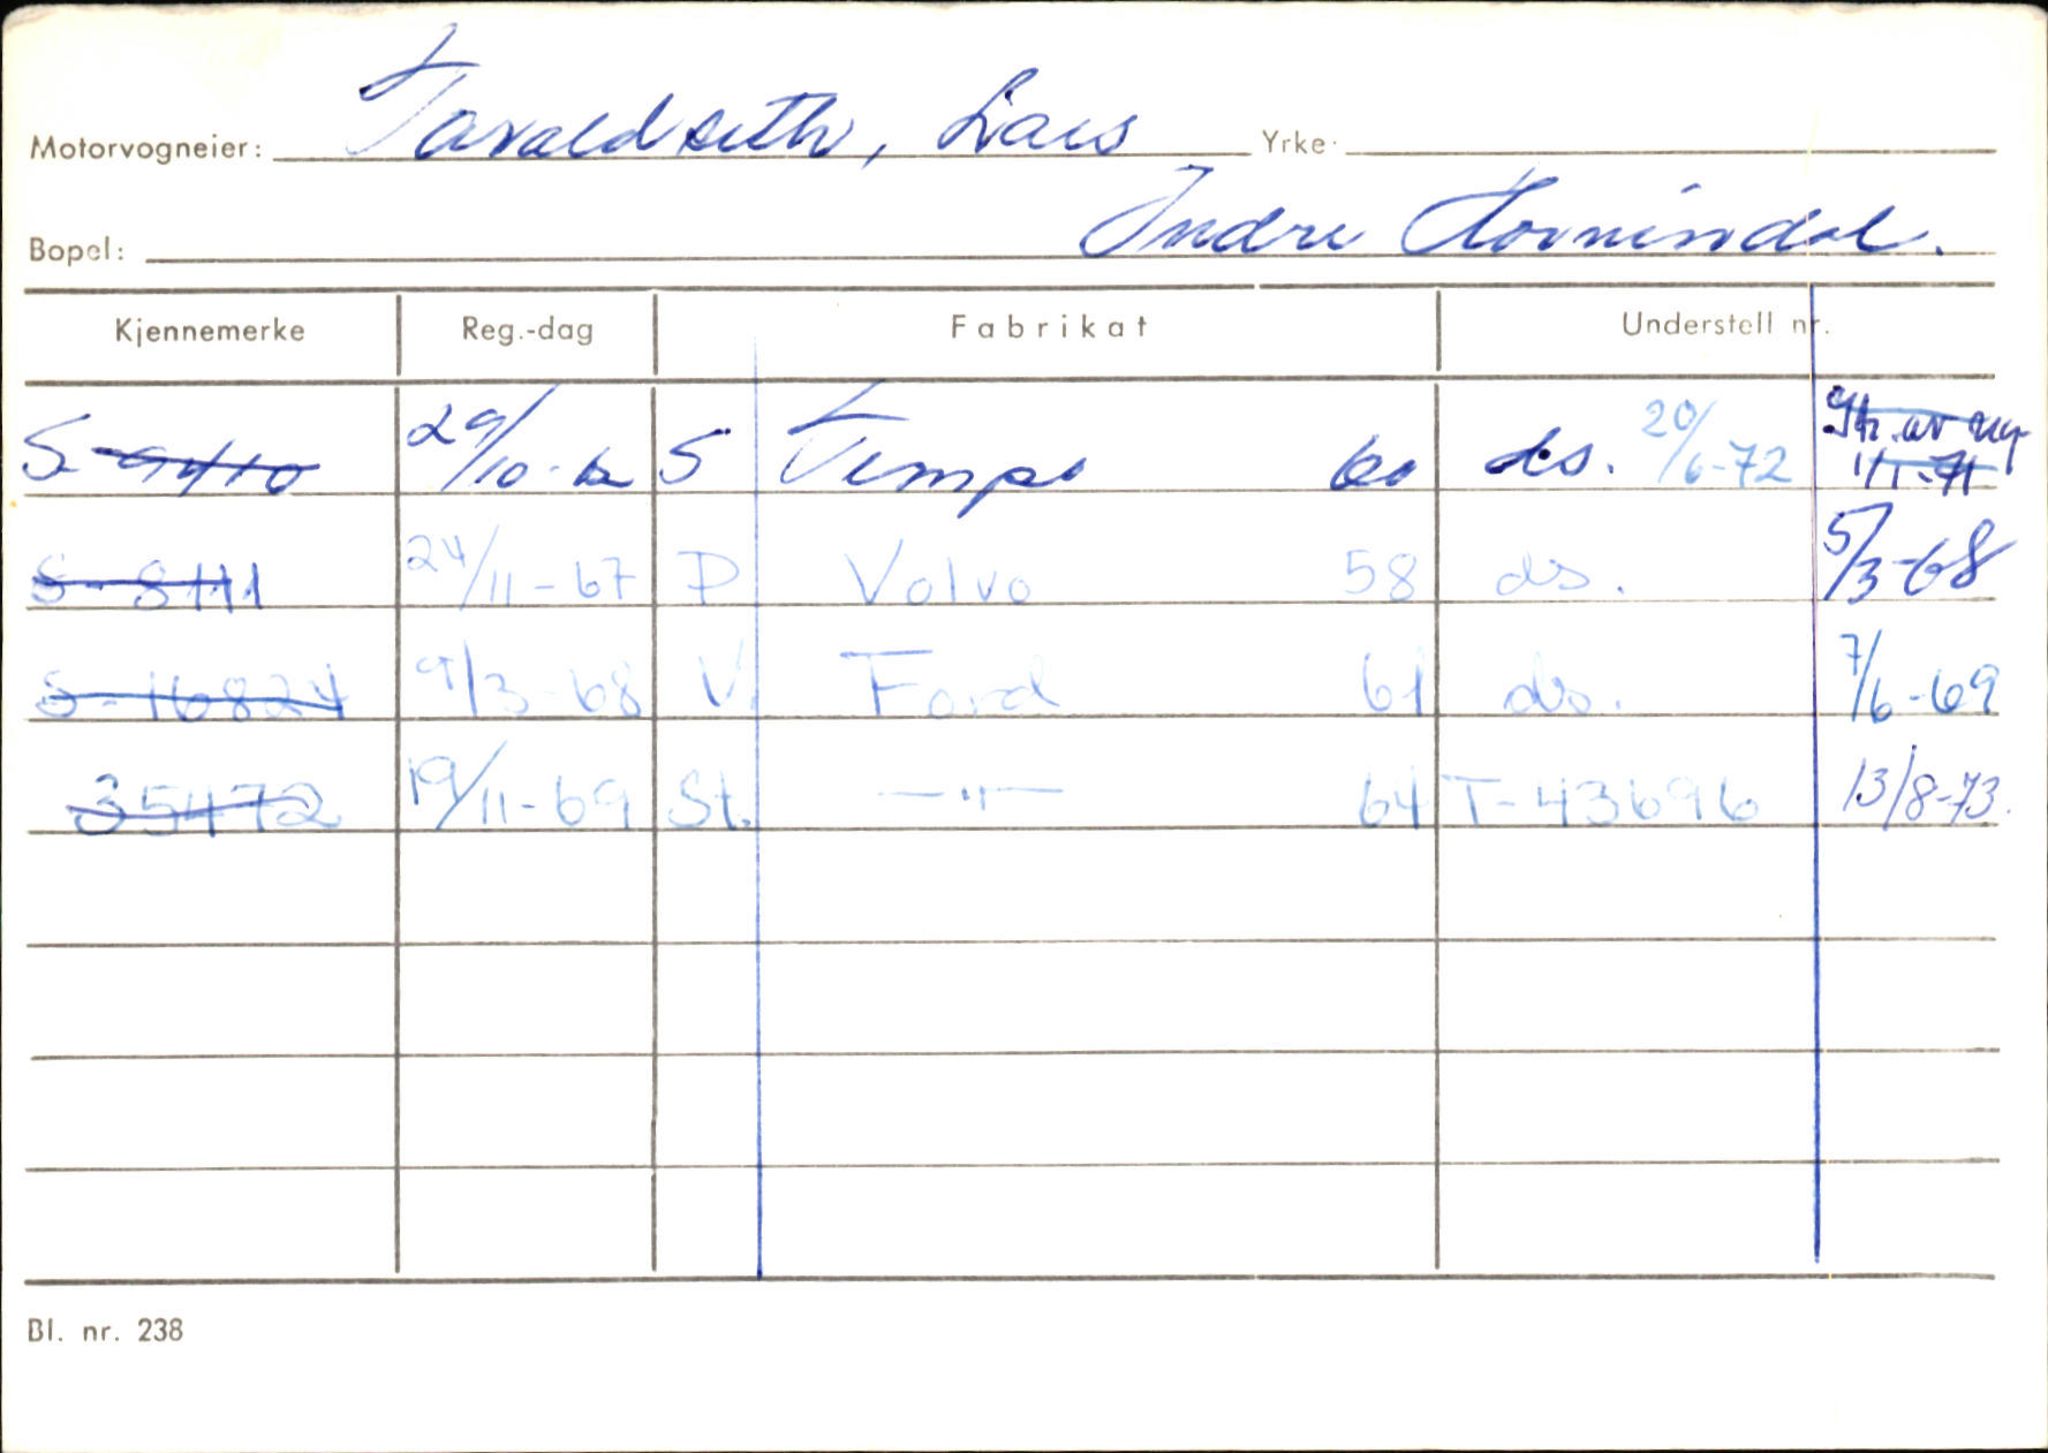 Motorvogneier: Taraldseth, Lars Yrke:
Bopel: Indre Hornindal.
Kjennemerke Reg.-dag Fabrikat Understell nr.
S-9410 29/10-62 S Tempo 60 ds. 20/6-72 av reg 1/1-71
S-8111 24/11-67 P Volvo 58 ds. 5/3-68
S-16824 9/3-68 V. Ford 61 ds. 7/6-69
35472 19/11-69 St. —"— 64 T-43696 13/8-73.
Bl. nr. 238